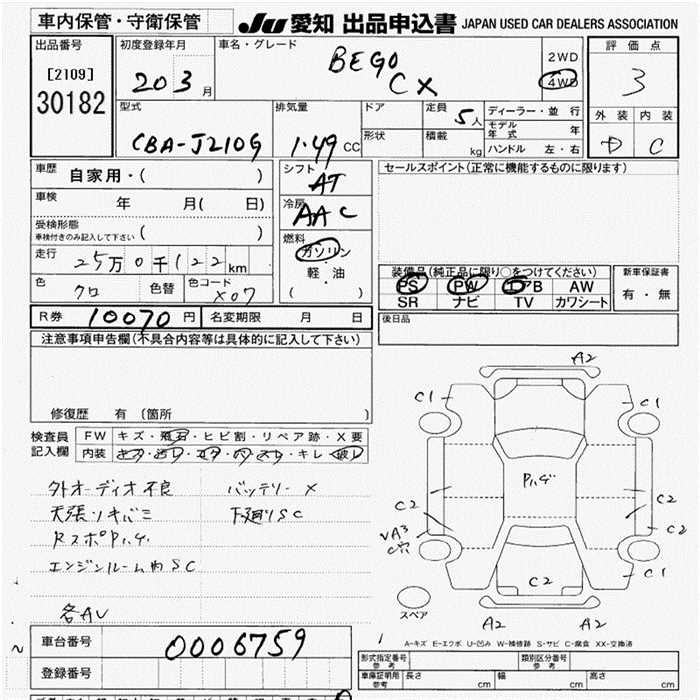 車内保管・守衛保管
JU 愛知 出品申込書 JAPAN USED CAR DEALERS ASSOCIATION
出品番号 初度登録年月 車名・グレード 評価点
[2109] 30182
20 3 月
BEGO CX
2WD
4WD
3
型式 CBA-J210G
排気量 1.49 CC
ドア
定員 5人
形状
積載 kg
ディーラー・並行
モデル年式 年
ハンドル 左・右
外装 内装
C
車歴 自家用・( )
車検 年 月( 日)
受検形態
車検付きのみ記入して下さい ( )
走行 25万0千122km
色 クロ 色替 色コード X07
シフト AT
冷房 AAC
燃料
ガソリン
軽・油
( )
セールスポイント(正常に機能するものに限ります)
装備品(純正品に限り○をつけてください)
PS PW エアB AW
SR ナビ TV カワシート
新車保証書
有・無
R券 10070円 名変期限 月 日
後日品
注意事項申告欄(不具合内容等は具体的に記入して下さい)
修復歴 有 〔箇所 〕
検査員記入欄
FW キズ・飛石・ヒビ割・リペア跡・X要
内装 キズ・ヨゴレ・コゲ・穴・スレ・キレ・破レ
外オーディオ不良 バッテリーX
天張リキバミ 下廻りSC
RスポPハゲ
エンジンルーム内SC
各AU
A2
C1 C1
Pハゲ
C2 C2
VA3 C2
C穴
C1
C2
スペア
A2 A2
A-キズ E-エクボ U-凹み W-補修跡 S-サビ C-腐食 XX-交換済
車台番号 0006759
登録番号
形式指定番号 参考
類別区分番号 参考
車庫証明用 参考 長さ cm 幅 cm 高さ cm